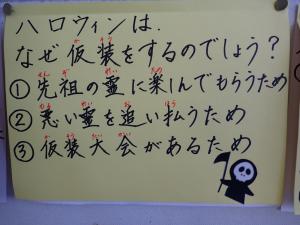 ハロウィンは、
なぜ仮装をするのでしょう？
①先祖の霊に楽しんでもらうため
②悪い霊を追い払うため
③仮装大会があるため